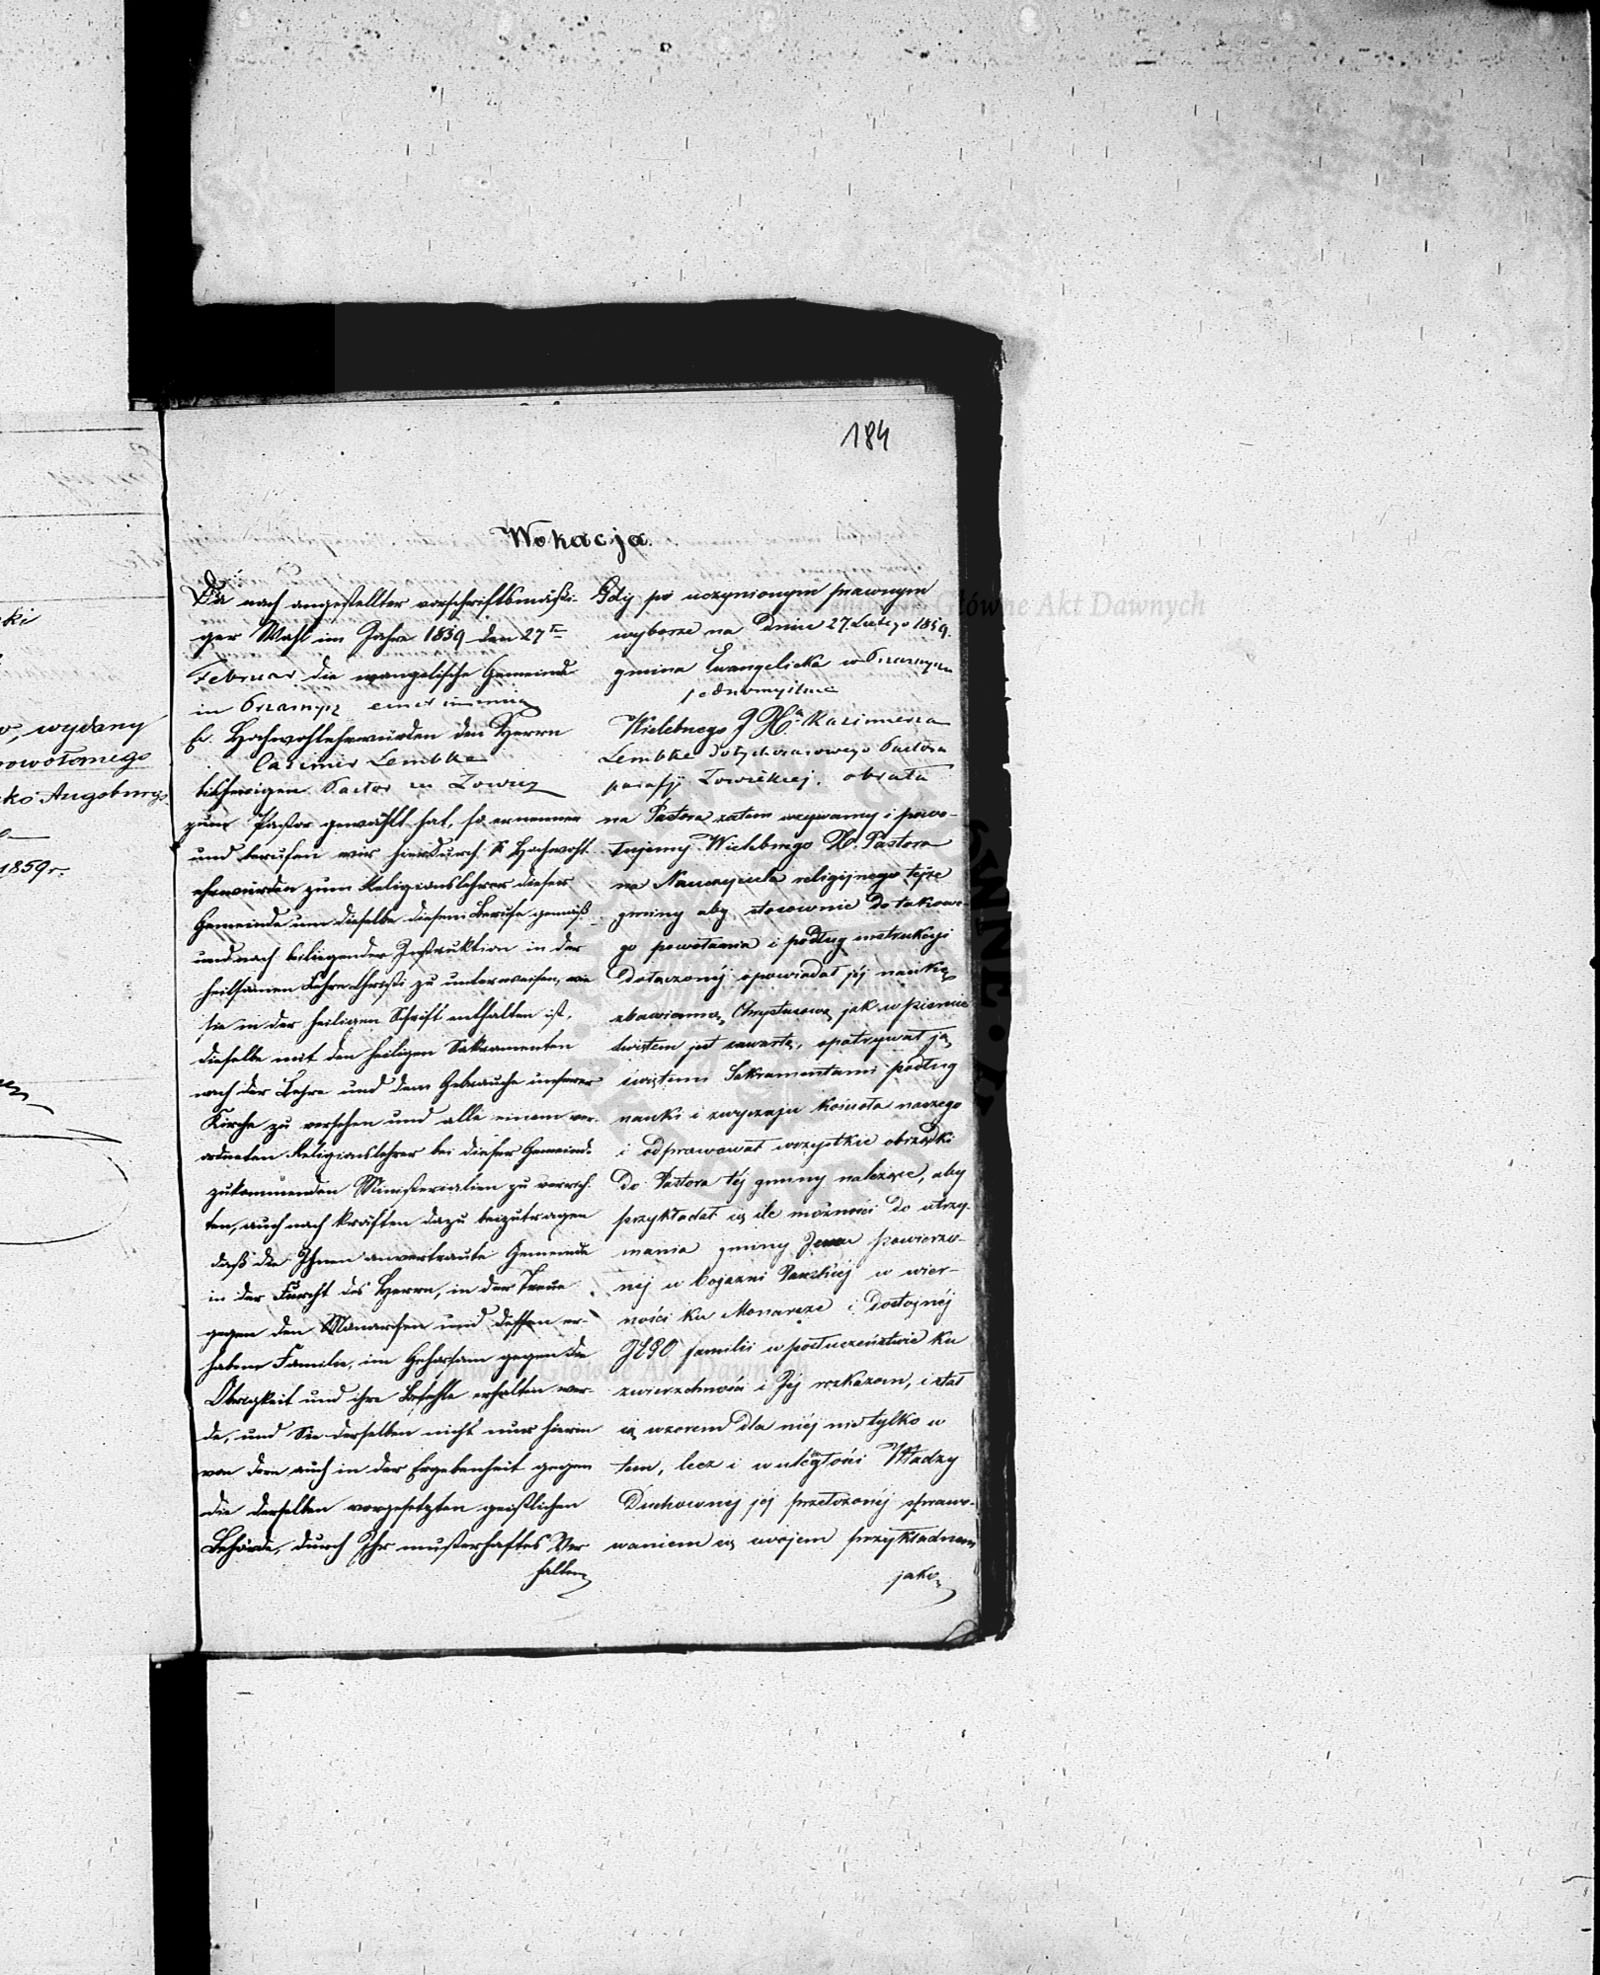 184
Wokacja.
Da nach angestellter vorschriftsmäßi-
ger Wahl im Jahre 1859 den 27te
Februar die evangelische Gemeinde
in Przasnysz einstimmig
Ew. Hochwohlehrwürden den Herrn
Casimir Lembke
bisherigen Pastor in Lowicz
zum Pastor gewählt hat, so ernennen
und berufen wir hierdurch Ew Hochwohl
ehrwürden zum Religionslehrer dieser
Gemeinde um dieselbe diesem Berufe gemäß
und nach beiliegender Instruktion in der
heilsamen Lehre Christi zu unterweisen, wie
sie in der heiligen Schrift enthalten ist,
dieselbe mit den heiligen Sakramenten
nach der Lehre und dem Gebrauche unserer
Kirche zu versehen und alle einem ver-
ordneten Religionslehrer bei dieser Gemeinde
zukommenden Ministerialien zu verrich-
ten, auch nach Kräften dazu beizutragen
daß die Ihnen anvertraute Gemeinde
in der Furcht des Herrn, in der Treue
gegen den Monarchen und dessen er-
habene Familie, im Gehorsam gegen die
Obrigkeit und ihre Befehle erhalten wer-
de, und Sie derselben nicht nur hierin
von dern auch in der Ergebenheit gegen
die derselben vorgesetzten geistlichen
Behörde, durch Ihr musterhaftes Ver
halten
Gdy po uczynionym prawnym
wyborze na dniu 27. Lutego 1859.
gmina Ewangelicka w Przasnyszu
jednomyślnie
Wielebnego J X. Kazimierza
Lembke dotychczasowego Pastora
parafji Łowickiej. obrała
na Pastora zatem wzywamy i powo-
łujemy Wielebnego X. Pastora
na Nauczyciela religijnego tejże
gminy aby stosownie do takowe-
go powołania i podług instrukcyi
dołączonéj opowiadał jéj naukę
zbawienną Chrystusową jak w piśmie
świętem jest zawarta, opatrywał ją
świętemi Sakramentami podług
nauki i zwyczaju kościoła naszego
i odprawował wszystkie obrządki
do Pastora téj gminy należące, aby
przykładał się ile możności do utrzy-
mania gminy Jemu powierzo-
néj w bojaźni Pańskiéj w wier-
ności ku Monarsze i Dostojnéj
JEGO familii w posłuszeństwie ku
zwierzchności i Jéj rozkazom, i stał
się wzorem dla niéj nie tylko w
tem, lecz i w uległości Władzy
Duchownéj jéj przełożonéj sprawo-
waniem się swojem przykładnem
jako
ki
wydany
powołanego
ko Augsburgs.
1859 r.
Główne Akt Dawnych
Główne Akt Dawnych